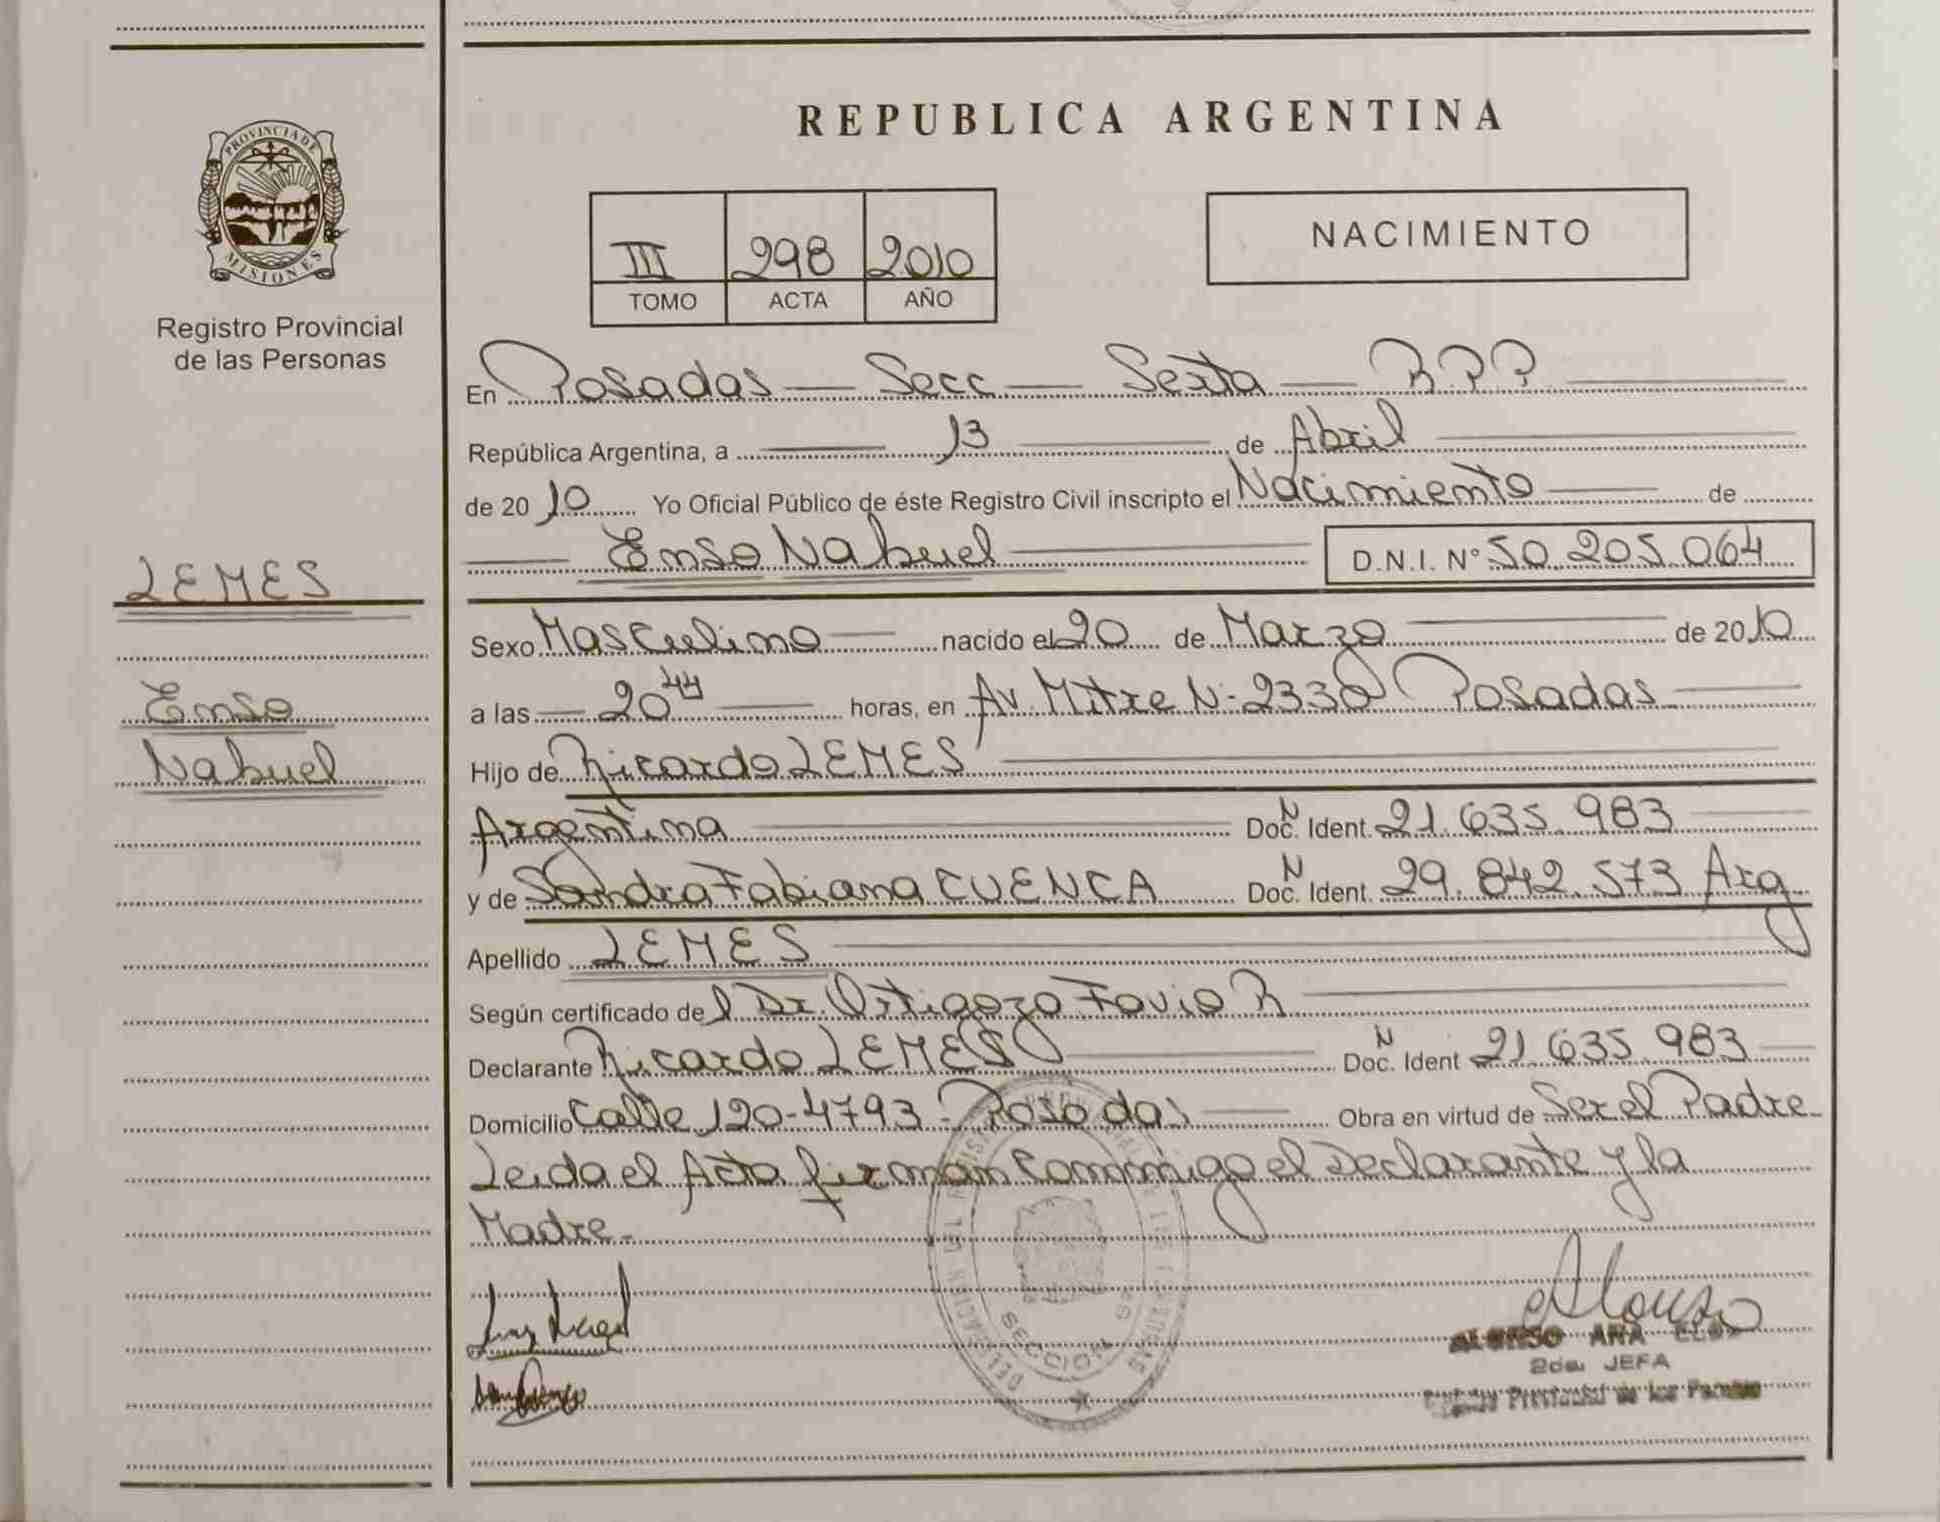 REPUBLICA ARGENTINA
PROVINCIA DE
MISIONES
Registro Provincial
de las Personas
III 298 2010
TOMO ACTA AÑO
NACIMIENTO
En Posadas — Secc — Sexta — R.P.P.
República Argentina, a 13 de Abril
de 2010 Yo Oficial Público de éste Registro Civil inscripto el Nacimiento de
Enso Nahuel D.N.I. Nº 50.205.064
LEMES
Enso
Nahuel
Sexo Masculino nacido el 20 de Marzo de 2010
a las 20 44 horas, en Av. Mitre N- 2330 Posadas
Hijo de Ricardo LEMES
Argentina Doc. N Ident. 21.635.983
y de Sandra Fabiana CUENCA Doc. N Ident. 29.842.573 Arg
Apellido LEMES
Según certificado de l Dr. Ortigoza Favio R
Declarante Ricardo LEMES Doc. N Ident 21.635.983
Domicilio Calle 120-4793- Posadas Obra en virtud de Ser el Padre
Leida el Acta firman Conmigo el Declarante y la
Madre.-
SECCION
Alonso
ALONSO ANA
2da. JEFA
Provincial de las Personas